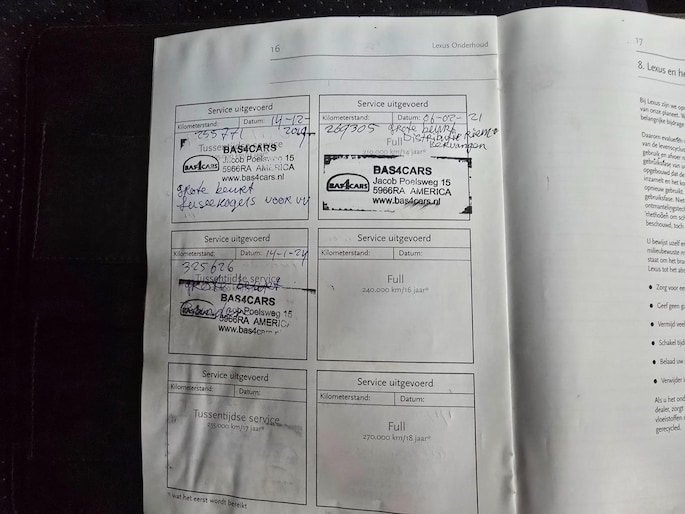 16
Lexus Onderhoud
Service uitgevoerd
Kilometerstand:
Datum: 14-12-
255771
2019
Tussentijdse
BAS4CARS
BAS4CARS
Jacob Poelsweg 15
5966RA AMERICA
www.bas4cars.nl
grote beurt
fuseekogels voor vv
Service uitgevoerd
Kilometerstand:
Datum: 06-02-21
269305 grote beurt
Distributie riem
vervangen
Full
210.000 km/14 jaar*
BAS4CARS
BAS4CARS
Jacob Poelsweg 15
5966RA AMERICA
www.bas4cars.nl
Service uitgevoerd
Kilometerstand:
Datum: 14-1-24
325626
Tussentijdse service
grote beurt
BAS4CARS
Poelsweg 15
5966RA AMERIC
www.bas4cars
Service uitgevoerd
Kilometerstand:
Datum:
Full
240.000 km/16 jaar*
Service uitgevoerd
Kilometerstand:
Datum:
Tussentijdse service
255.000 km/17 jaar*
Service uitgevoerd
Kilometerstand:
Datum:
Full
270.000 km/18 jaar*
* wat het eerst wordt bereikt
17
8. Lexus en he
Bij Lexus zijn we op
van onze planeet. V
belangrijke bijdrage
Daarom evalueren
van de levenscyclus
gebruik en afvoer
gebruiksfase van
opgebouwd dat de
inzamelt en het ko
opnieuw gebruikt.
gebruiksfase. Niet
ontmantelingstech
methoden om sch
beschouwd, toch
U bewijst uzelf en
milieubewuste m
staat om het bra
Lexus tot het abs
• Zorg voor ee
• Geef geen ga
• Vermijd veel
• Schakel tijd
• Belaad uw
• Verwijder
Als u het ond
dealer, zorgt
vloeistoffen
gerecycled.